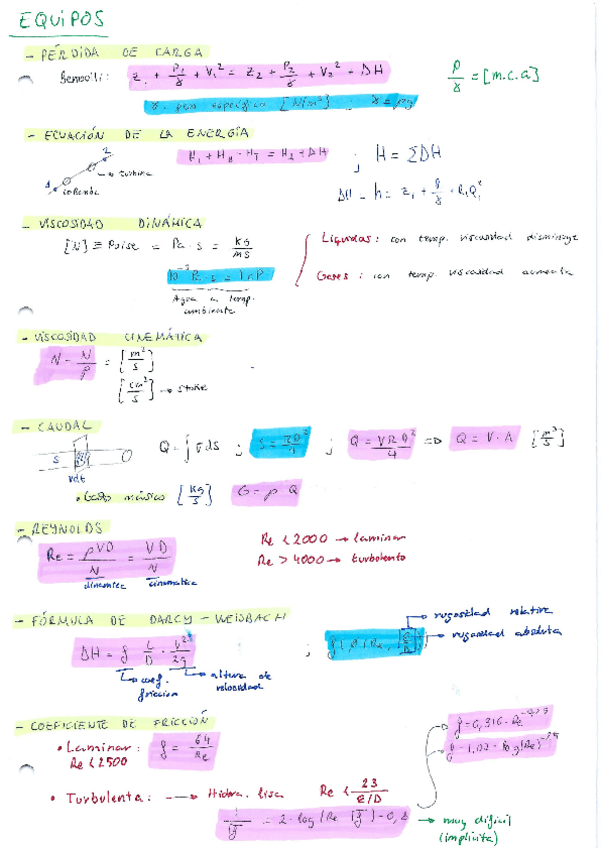 EQUIPOS
- PÉRDIDA DE CARGA
Bernoilli: Z₁ + P₁/γ + V₁² = Z₂ + P₂/γ + V₂² + ΔH
P/γ = [m.c.a]
γ: peso específico [N/m³] ; γ = ρg
- ECUACIÓN DE LA ENERGÍA
H₁ + H_B - H_T = H₂ + ΔH ; H = ΣΔH
2
→ turbina
1 bomba
ΔH = h = Z₁ + P/γ
- VISCOSIDAD DINÁMICA
[N] ≡ Poise = Pa · s = kg/ms
Líquidos: con temp. viscosidad disminuye
10⁻³ Pa · s = 1 cP
Gases: con temp. viscosidad aumenta
Agua a temp. ambiente
- VISCOSIDAD CINEMÁTICA
N = N/ρ = [m²/s]
[cm²/s] → stoke
- CAUDAL
S
vdt
Q = ∫ v ds ; S = πD²/4 ; Q = VπD²/4 => Q = V · A [m³/s]
• Gasto másico [kg/s] G = ρ · Q
- REYNOLDS
Re = ρVD/N = VD/N
dinámica cinemática
Re < 2000 → laminar
Re > 4000 → turbulento
- FÓRMULA DE DARCY - WEISBACH
ΔH = f · L/D · V²/2g ;
→ coef. fricción
→ altura de velocidad
→ rugosidad relativa
→ rugosidad absoluta
- COEFICIENTE DE FRICCIÓN
• Laminar: f = 64/Re
Re < 2500
f = 0,316 · Re
• Turbulenta: → Hidra. lisa Re < 23/(ε/D)
1/√f = 2 · log (Re √f) - 0,8 → muy difícil (implícita)